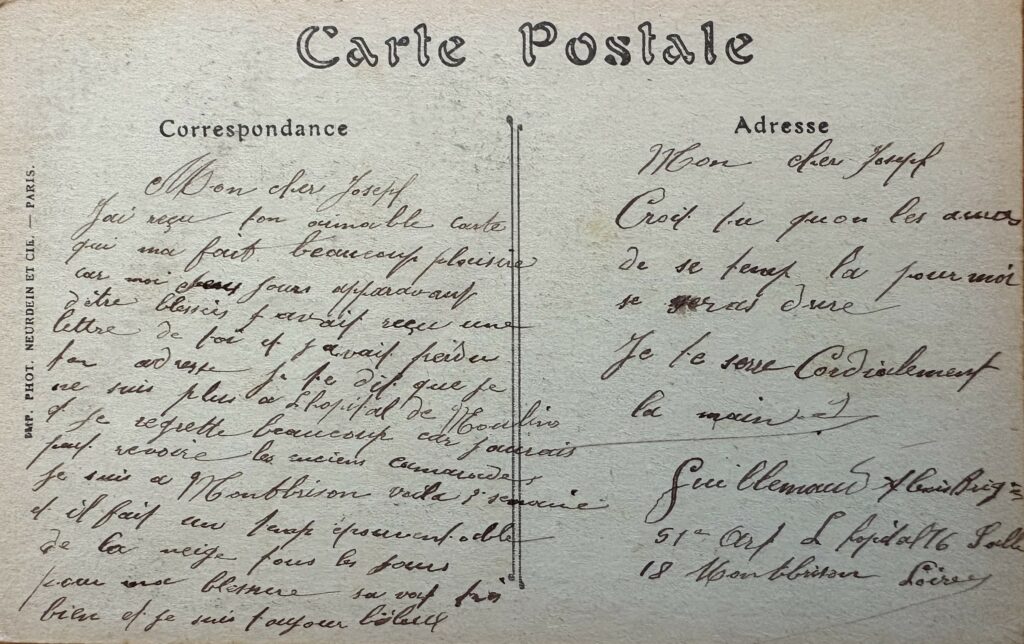 Carte Postale
Correspondance
Mon cher Joseph
J'ai reçu ton aimable carte
qui ma fait beaucoup plousire
car moi jours apparavant
d'être blessés j avait reçu une
lettre de toi et j avait perdu
ton adresse je te dit que je
ne suis plus a L hopital de Moulins
et je regrette beaucoup car j aurais
put revoire les anciens camarades
Je suis a Montbrison voila semaine
et il fait un temp epouventable
de la neige tous les jours
pour ma blessure sa vat très
bien et je suis toujour
Adresse
Mon cher Joseph
Croit tu quon les auras
de se temp la pour moi
se seras dure
Je te serre Cordialement
la main
Guillemaud Brig
51e Art L hopital 76 Salle
18 Montbrison Loire
IMP. PHOT. NEURDEIN ET CIE. — PARIS.